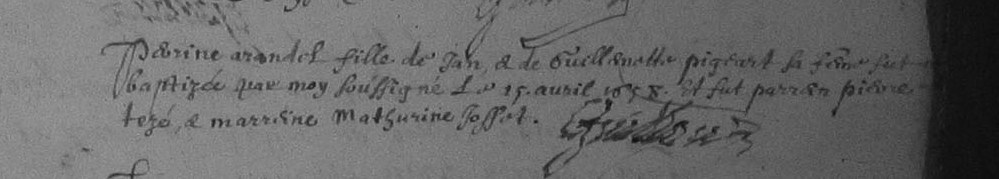 Perine arondel fille de Jan, & de Guillemette pigeart sa féme fut
baptizée par moy soussigné Le 15. auril 1658. Et fut parraen pierre
tezé, & marraene Mathurine Jossot.